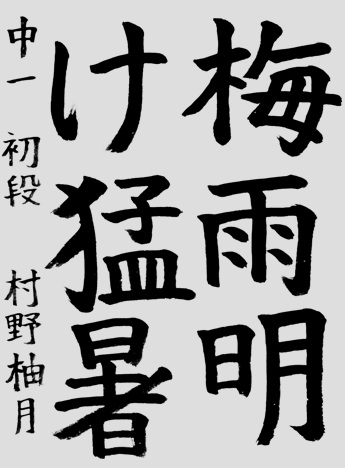 梅雨明
け猛暑
中一 初段 村野柚月